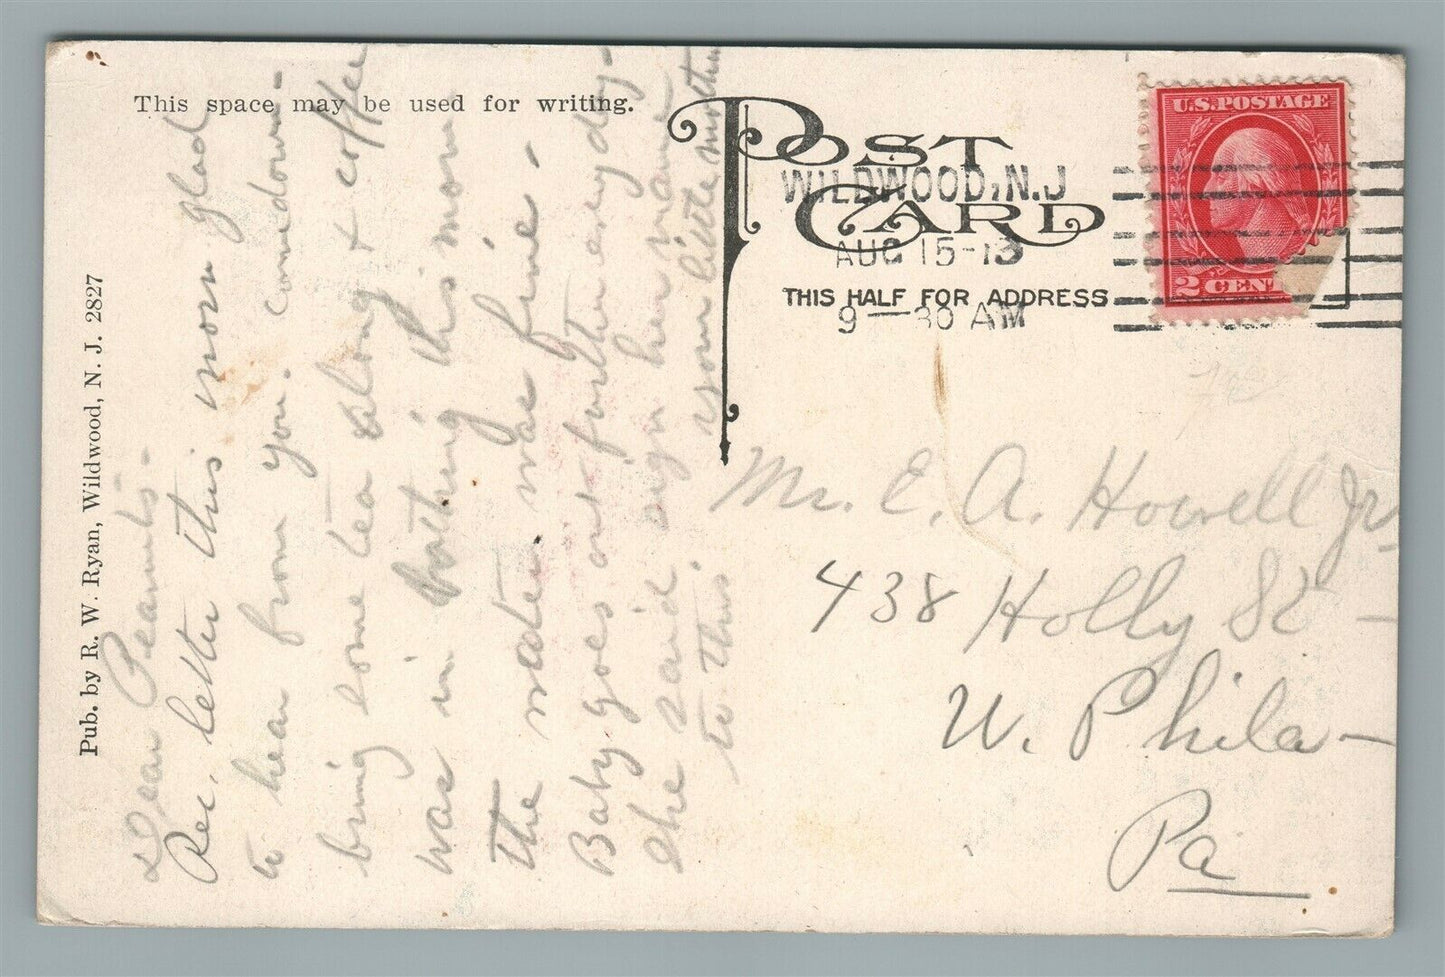 This space may be used for writing.
POST
CARD
THIS HALF FOR ADDRESS
U.S. POSTAGE
2 CENT
WILDWOOD, N.J
AUG 15-13
9-30 AM
Pub. by R. W. Ryan, Wildwood, N. J. 2827
Dear Peanuts-
Rec. letter this morn glad
to hear from you. Come down-
bring some tea along & coffee
was in bathing this morn
the water was fine-
Baby goes out further every day-
She said sign her name
to this. your little
Mr. E. A. Howell Jr.
438 Holly St-
W. Phila-
Pa